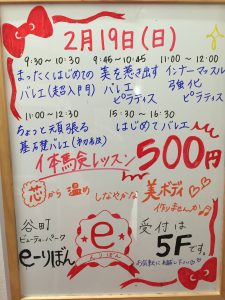 2月19日(日)
9:30~10:30 9:45~10:45 11:00~12:00
まったくはじめての 美を巻き出す インナーマッスル
バレエ(超入門) バレエ 強化
ピラティス ピラティス
11:00~12:30 15:30~16:30
ちょっと頑張る はじめてバレエ
基石礎バレエ(初初級)
体験レッスン 500円
芯から温め しなやかな 美ボディ
作りませんか
谷町
ビューティーパーク
e-りぼん
e
えりぼん
受付は
5Fです。
お気軽にお越し下さい